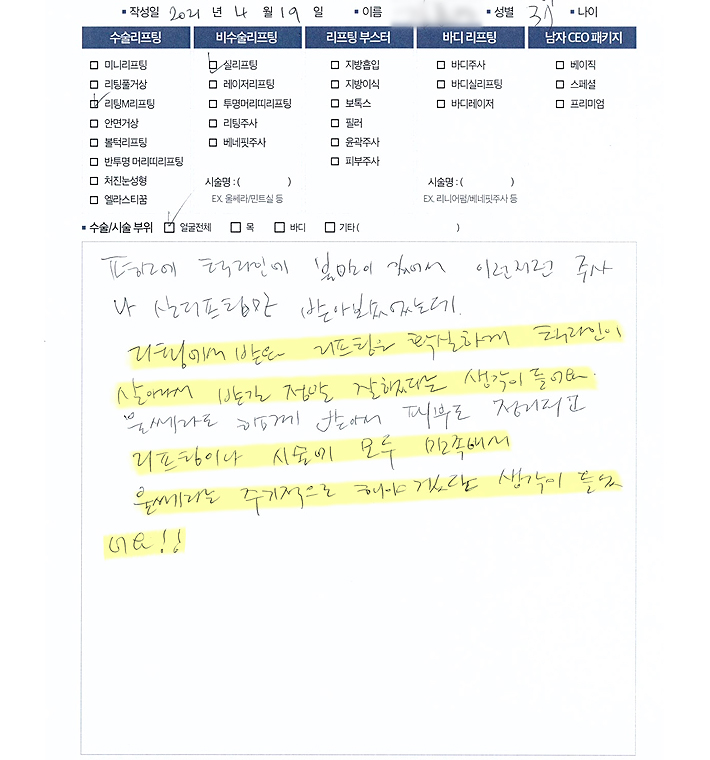 작성일 2021 년 4 월 19 일 이름 성별 여 나이
수술리프팅 비수술리프팅 리프팅 부스터 바디 리프팅 남자 CEO 패키지
미니리프팅 실리프팅 지방흡입 바디주사 베이직
리팅풀거상 레이저리프팅 지방이식 바디실리프팅 스페셜
리팅M리프팅 투명머리띠리프팅 보톡스 바디레이저 프리미엄
안면거상 리팅주사 필러
볼턱리프팅 베네핏주사 윤곽주사
반투명 머리띠리프팅 피부주사
처진눈성형 시술명 : ( ) 시술명 : ( )
엘라스티꿈 EX. 울쎄라/민트실 등 EX. 리니어펌/베네핏주사 등
수술/시술 부위 얼굴전체 목 바디 기타 ( )
평소에 턱라인에 불만이 있어서 이런저런 주사
나 실리프팅만 받아보았었는데.
리팅에서 받은 리프팅은 확실하게 턱라인이
살아나서 받길 정말 잘했다는 생각이 들어요.
울쎄라도 함께 받아서 피부도 정리되고
리프팅이나 시술에 모두 만족해서
울쎄라는 주기적으로 해야겠다는 생각이 들었
어요!!